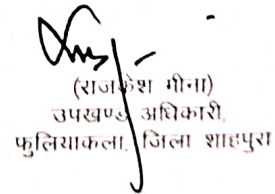 (राजकेश मीना)
उपखण्ड अधिकारी,
फुलियाकला, जिला शाहपुरा